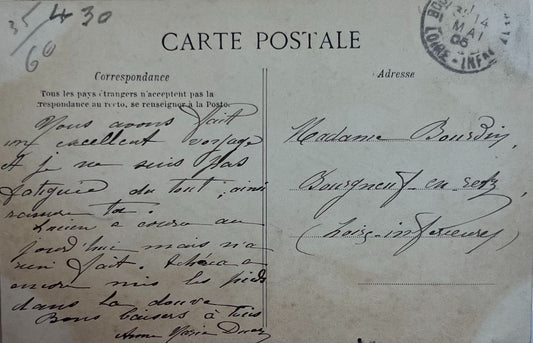 35/430
60
CARTE POSTALE
Correspondance
Tous les pays étrangers n'acceptent pas la
respondance au recto, se renseigner à la Poste.
Nous avons fait
un excellent voyage
et je ne suis pas
fatiguée du tout, ainsi
toi.
Lucien a couru au
jourd'hui mais n'a
rien fait. a
encore mis les pieds
dans la douve
Bons baisers à tous
Anne Marie
Adresse
Madame Bourdin
Bourgneuf-en-retz
(Loire-inférieure)
14
MAI
06
LOIRE-INF